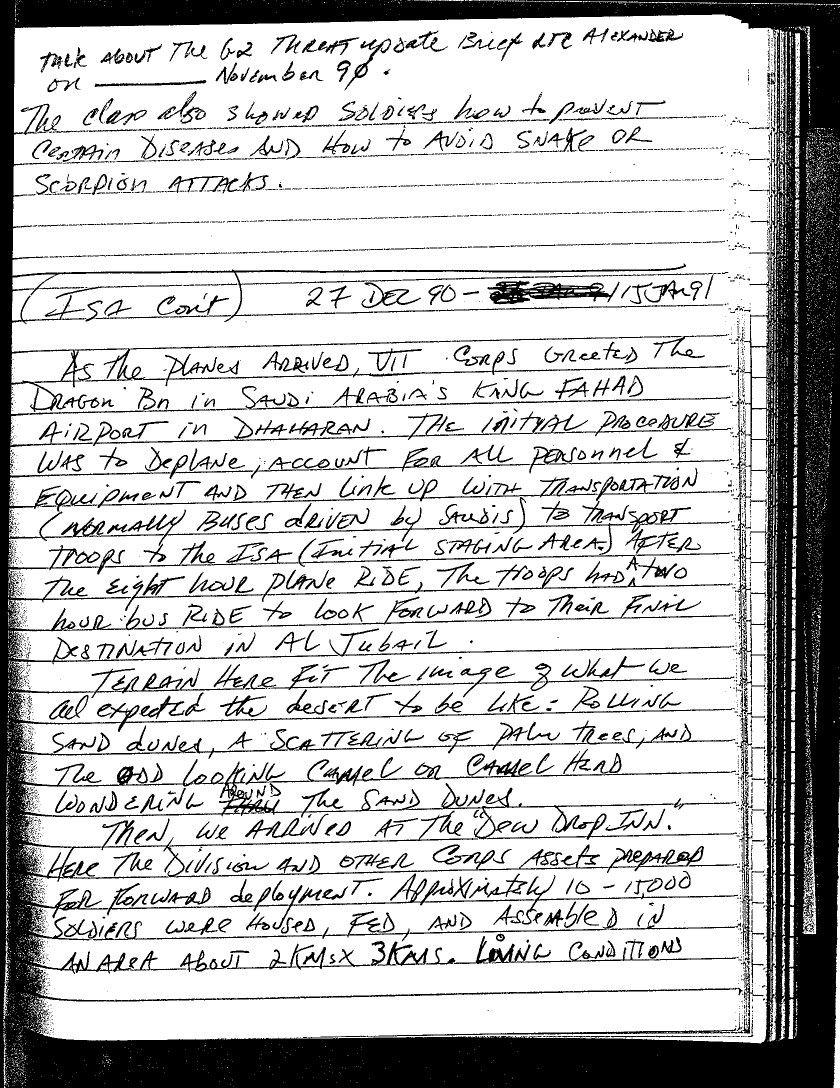 talk about the G2 Threat update Brief LTC Alexander
on ________ November 90.
The class also showed soldiers how to prevent
certain diseases and how to avoid snake or
scorpion attacks.
(ISA Con't) 27 Dec 90 - /15 Jan 91
As the planes arrived, VII Corps greeted the
Dragon Bn in Saudi Arabia's King Fahad
Airport in Dhaharan. The initial procedure
was to deplane, account for all personnel &
equipment and then link up with transportation
(normally buses driven by Saudis) to transport
troops to the ISA (Initial Staging Area.) After
the eight hour plane ride, the troops had a two
hour bus ride to look forward to their final
destination in Al Jubail.
Terrain here fit the image of what we
all expected the desert to be like: rolling
sand dunes, a scattering of palm trees, and
the odd looking camel or camel herd
wondering around the sand dunes.
Then, we arrived at the "Dew Drop Inn."
Here the Division and other Corps assets prepared
for forward deployment. Approximately 10 - 15,000
soldiers were housed, fed, and assembled in
an area about 2 Kms x 3 Kms. Living conditions